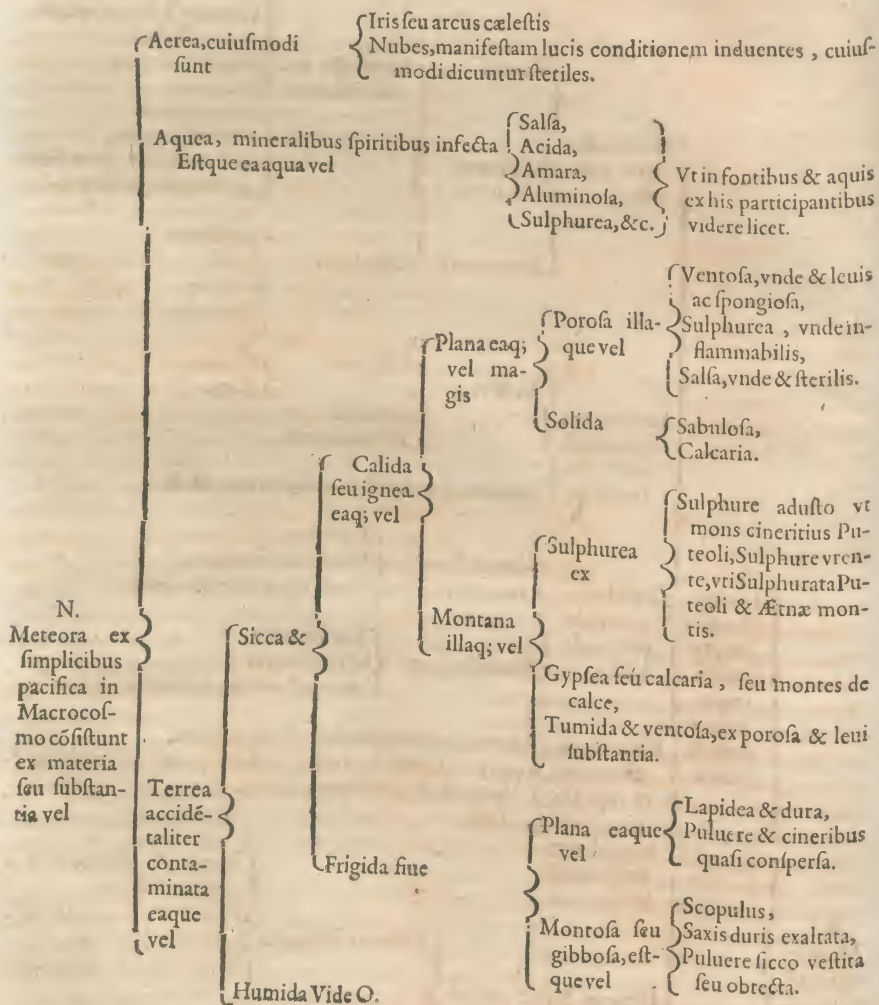 Aerea,cuiuſmodi
ſunt
Iris ſeu arcus cæleſtis
Nubes,manifeſtam lucis conditionem induentes , cuiuſ-
modi dicuntur ſteriles.
Aquea, mineralibus ſpiritibus infecta
Eſtque ea aqua vel
Salſa,
Acida,
Amara,
Aluminoſa,
Sulphurea, &c.
Vt in fontibus & aquis
ex his participantibus
videre licet.
N.
Meteora ex
ſimplicibus
pacifica in
Macrocoſ-
mo cõſiſtunt
ex materia
ſeu ſubſtan-
tia vel
Terrea
accidẽ-
taliter
conta-
minata
eaque
vel
Sicca &
Calida
ſeu ignea
eaq; vel
Plana eaq;
vel ma-
gis
Poroſa illa-
que vel
Ventoſa, vnde & leuis
ac ſpongioſa,
Sulphurea , vnde in-
flammabilis,
Salſa, vnde & ſterilis.
Solida
Sabuloſa,
Calcaria.
Montana
illaq; vel
Sulphurea
ex
Sulphure aduſto vt
mons cineritius Pu-
teoli, Sulphure vren-
te, vti Sulphurata Pu-
teoli & Ætnæ mon-
tis.
Gypſea ſeu calcaria , ſeu montes de
calce,
Tumida & ventoſa, ex poroſa & leui
ſubſtantia.
Frigida ſiue
Plana eaque
vel
Lapidea & dura,
Puluere & cineribus
quaſi conſperſa.
Montoſa ſeu
gibboſa, eſt-
que vel
Scopulus,
Saxis duris exaltata,
Puluere ſicco veſtita
ſeu obtecta.
Humida Vide O.